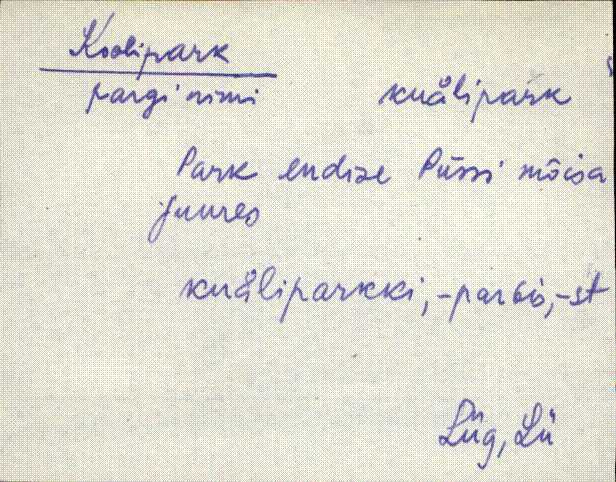 Koolipark
pargi nimi kuålipark
Park endise Püssi mõisa
juures
kuåliparkki, -parGis, -st
Lüg, Lü